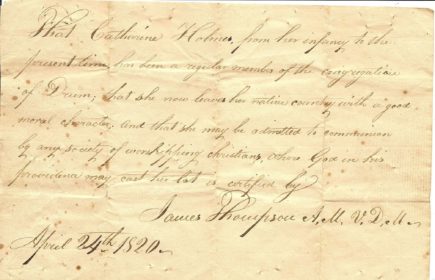 That Catherine Holmes, from her infancy to the
present time, has been a regular member of the congregation
of Drum; that she now leaves her native country with a good
moral character; and that she may be admitted to communion
by any society of worshipping christians, where God in his
providence may cast her lot is certified by
James Thompson A. M. V. D. M.
April 24th 1820.